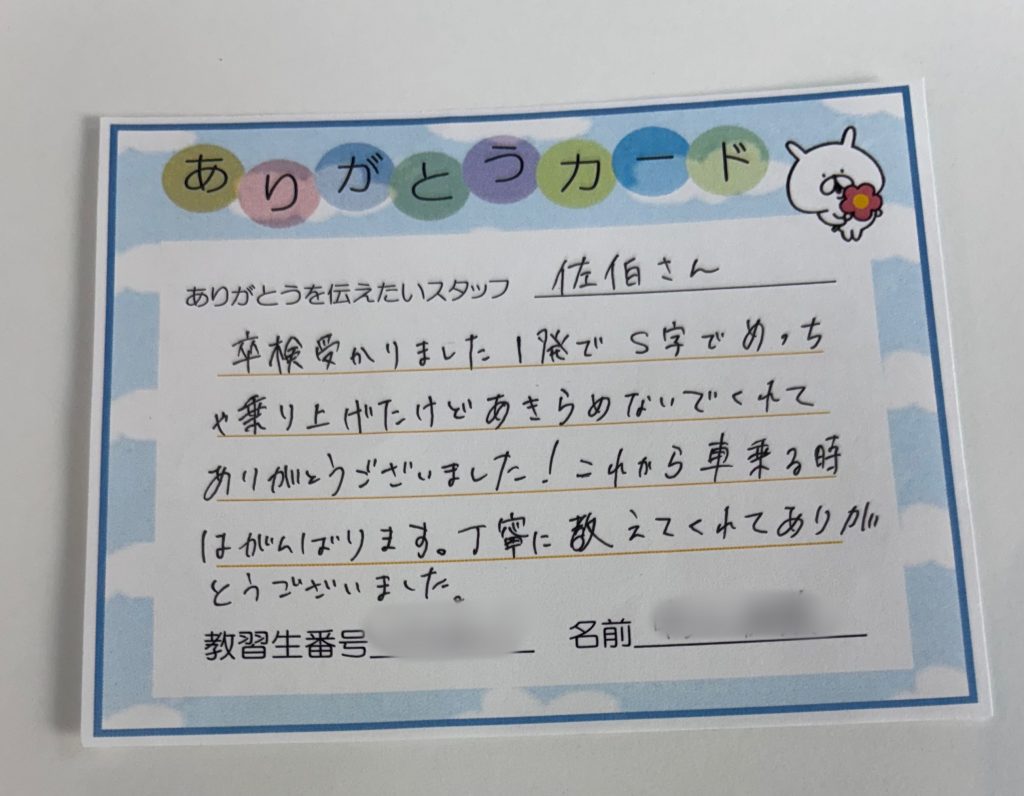 ありがとうカード
ありがとうを伝えたいスタッフ 佐伯さん
卒検受かりました1発でS字でめっち
ゃ乗り上げたけどあきらめないでくれて
ありがとうございました!これから車乗る時
はがんばります。丁寧に教えてくれてありが
とうございました。
教習生番号 名前